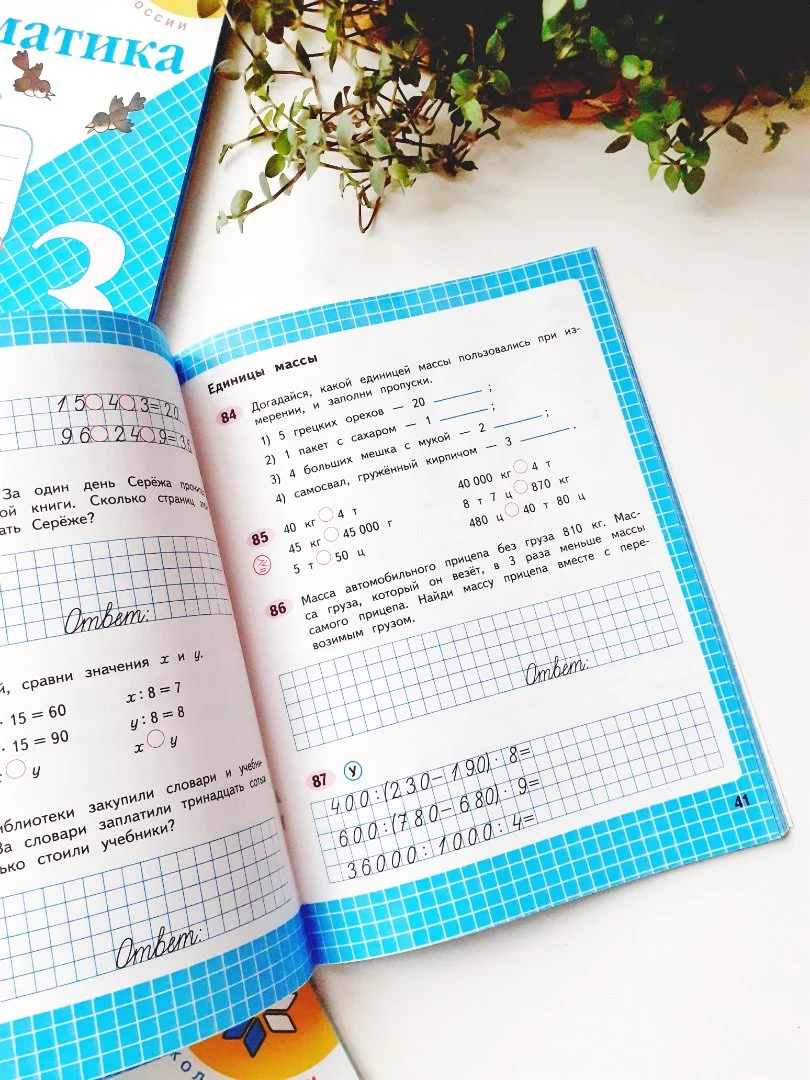 оссии
матика
3
15○4○3=20
96○24○9=36
За один день Серёжа
ой книги. Сколько страниц
ать Серёже?
Ответ:
й, сравни значения x и y.
· 15 = 60
x : 8 = 7
· 15 = 90
y : 8 = 8
○ y
x ○ y
иблиотеки закупили словари и учебни-
За словари заплатили тринадцать
ько стоили учебники?
Ответ:
Единицы массы
84 Догадайся, какой единицей массы пользовались при из-
мерении, и заполни пропуски.
1) 5 грецких орехов — 20 ______ ;
2) 1 пакет с сахаром — 1 ______ ;
3) 4 больших мешка с мукой — 2 ______ ;
4) самосвал, гружённый кирпичом — 3 ______ .
85 40 кг ○ 4 т
40 000 кг ○ 4 т
45 кг ○ 45 000 г
8 т 7 ц ○ 870 кг
5 т ○ 50 ц
480 ц ○ 40 т 80 ц
86 Масса автомобильного прицепа без груза 810 кг. Мас-
са груза, который он везёт, в 3 раза меньше массы
самого прицепа. Найди массу прицепа вместе с пере-
возимым грузом.
Ответ:
87 У
400:(230-190)·8=
600:(780-680)·9=
36000:1000:4=
41